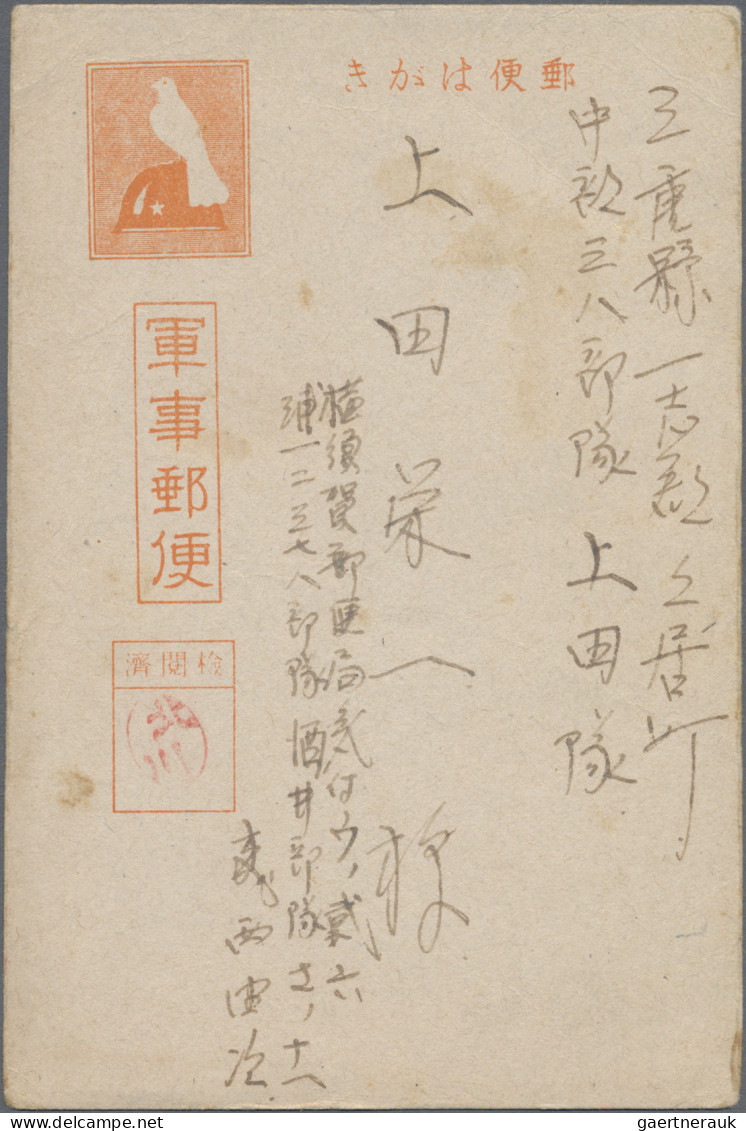 郵便はがき
三重縣一志郡久居町
中部三八部隊 上田隊
上田栄一様
横須賀郵便局気付ウノ貮六
浦一二三七八部隊酒井部隊
西由次
軍事郵便
検閲濟
北川
gaertnerauk